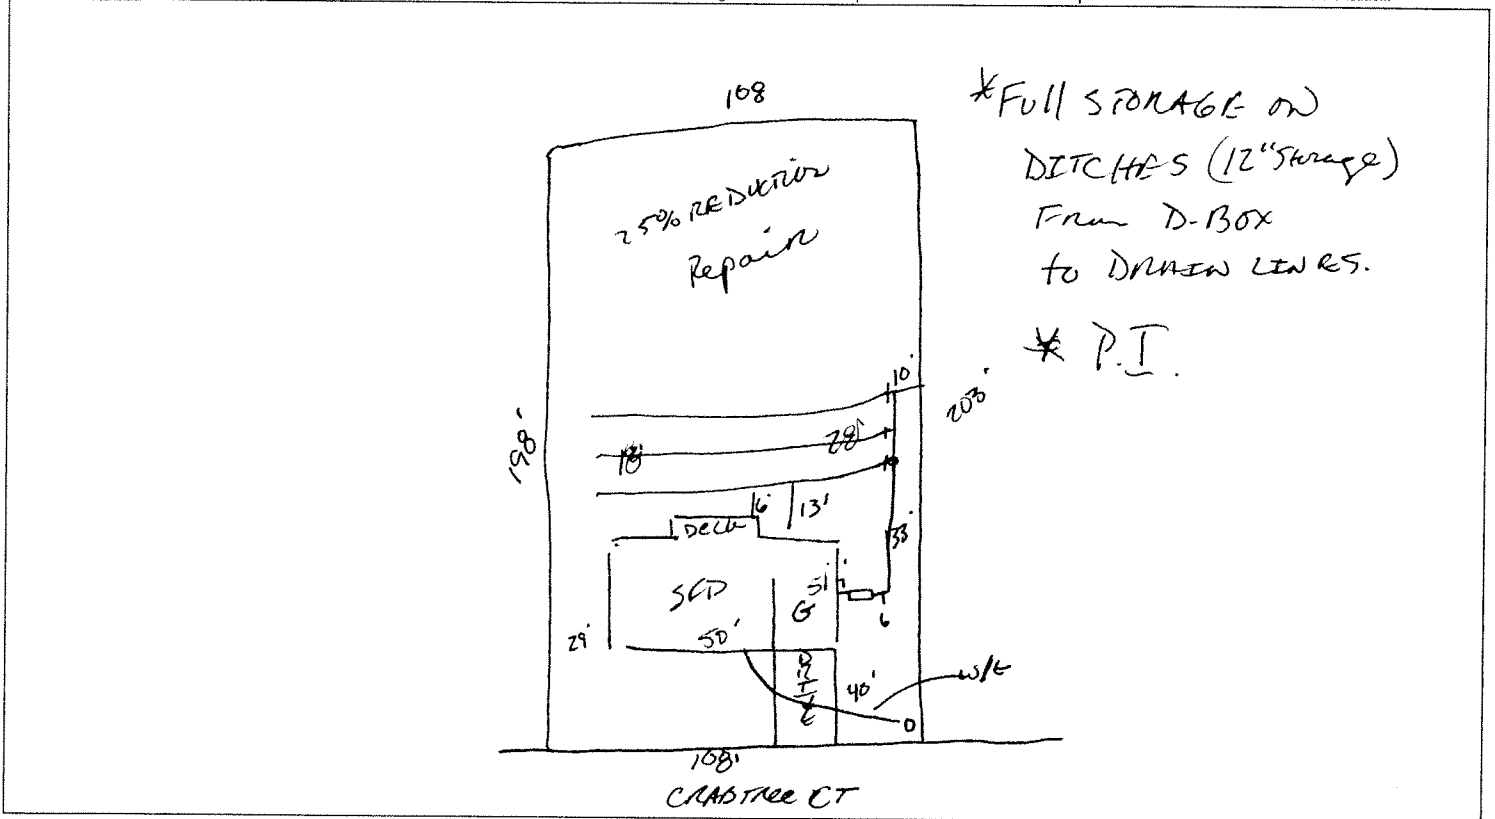 108
*Full STORAGE ON
DITCHES (12" Storage)
From D-BOX
to DRAIN LINES.
* P.I.
25% REDUCTION
Repair
10'
203'
198'
18'
28'
6'
13'
DECK
33'
SFD
51'
G
6
29'
50'
DRIVE
40'
W/L
108'
CRABTREE CT